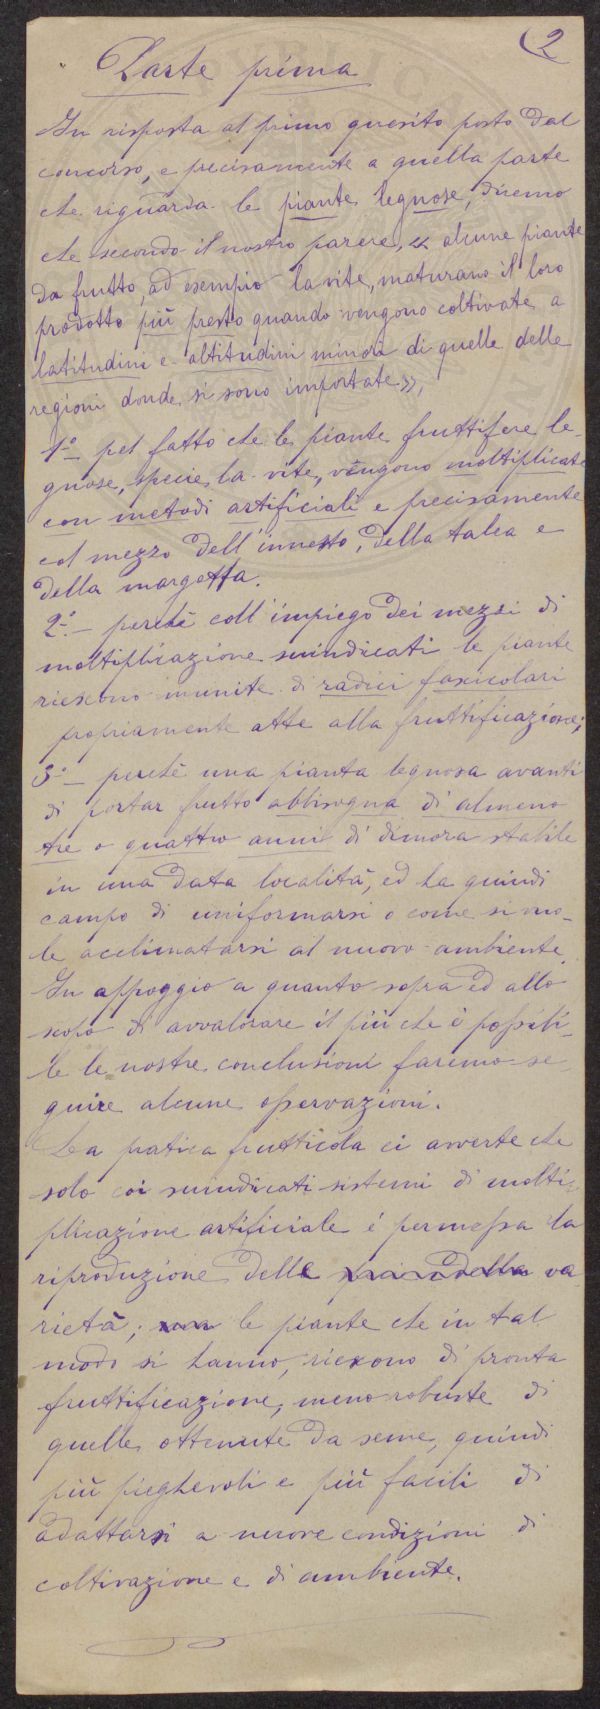 2
Parte prima
In risposta al primo quesito posto dal
concorso, e precisamente a quella parte
che riguarda le piante legnose, diremo
che secondo il nostro parere, « alcune piante
da frutto, ad esempio la vite, maturano il loro
prodotto più presto quando vengono coltivate a
latitudini e altitudini minori di quelle delle
regioni donde si sono importate »,
1° pel fatto che le piante fruttifere le-
gnose, specie la vite, vengono moltiplicate
con metodi artificiali e precisamente
col mezzo dell'innesto, della talea e
della margotta.
2° – perchè coll'impiego dei mezzi di
moltiplicazione suindicati le piante
riescono munite di radici fascicolari
propriamente atte alla fruttificazione;
3° – perchè una pianta legnosa avanti
di portar frutto abbisogna di almeno
tre o quattro anni di dimora stabile
in una data località, ed ha quindi
campo di uniformarsi o come si vuo-
le acclimatarsi al nuovo ambiente.
In appoggio a quanto sopra ed allo
scopo di avvalorare il più che è possibi-
le le nostre conclusioni faremo se-
guire alcune osservazioni.
La pratica frutticola ci avverte che
solo coi suindicati sistemi di molti-
plicazione artificiale é permessa la
riproduzione delle va-
rietà; le piante che in tal
modo si hanno, riescono di pronta
fruttificazione, meno robuste di
quelle ottenute da seme, quindi
più pieghevoli e più facili di
adattarsi a nuove condizioni di
coltivazione e di ambiente.